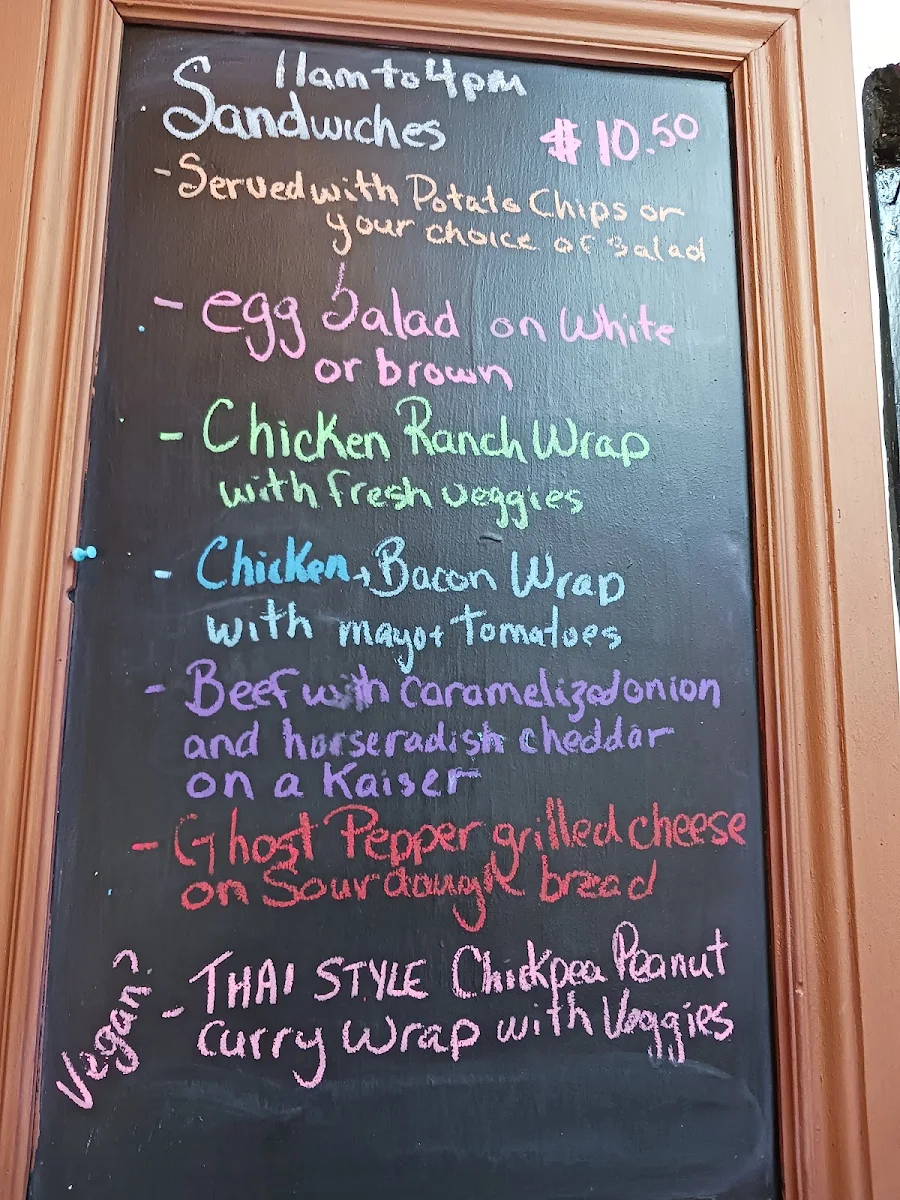 11am to 4pm
Sandwiches $10.50
- Served with Potato Chips or
your choice of salad
- egg Salad on White
or brown
- Chicken Ranch Wrap
with fresh veggies
- Chicken, Bacon Wrap
with mayo + Tomatoes
- Beef with caramelized onion
and horseradish cheddar
on a Kaiser
- Ghost Pepper grilled cheese
on Sourdough bread
Vegan?
- THAI STYLE Chickpea Peanut
curry Wrap with Veggies